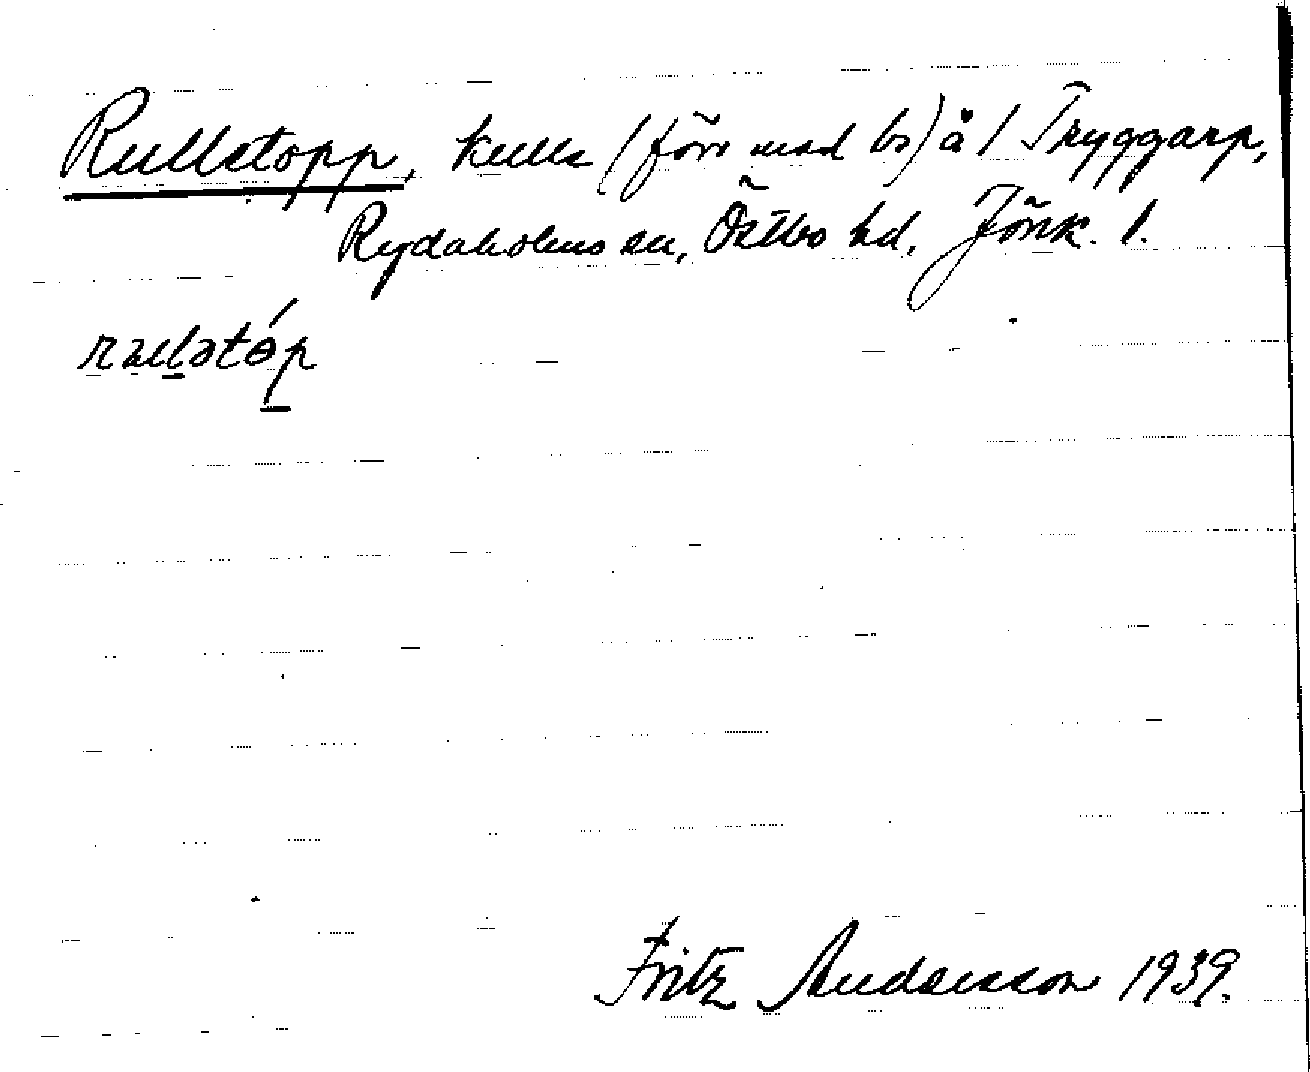 Rulletopp, kulle (förr med bs) å 1 Tryggarp,
Rydaholms sn, Östbo hd, Jönk. l.
rulətóp
Fritz Andersson 1939.